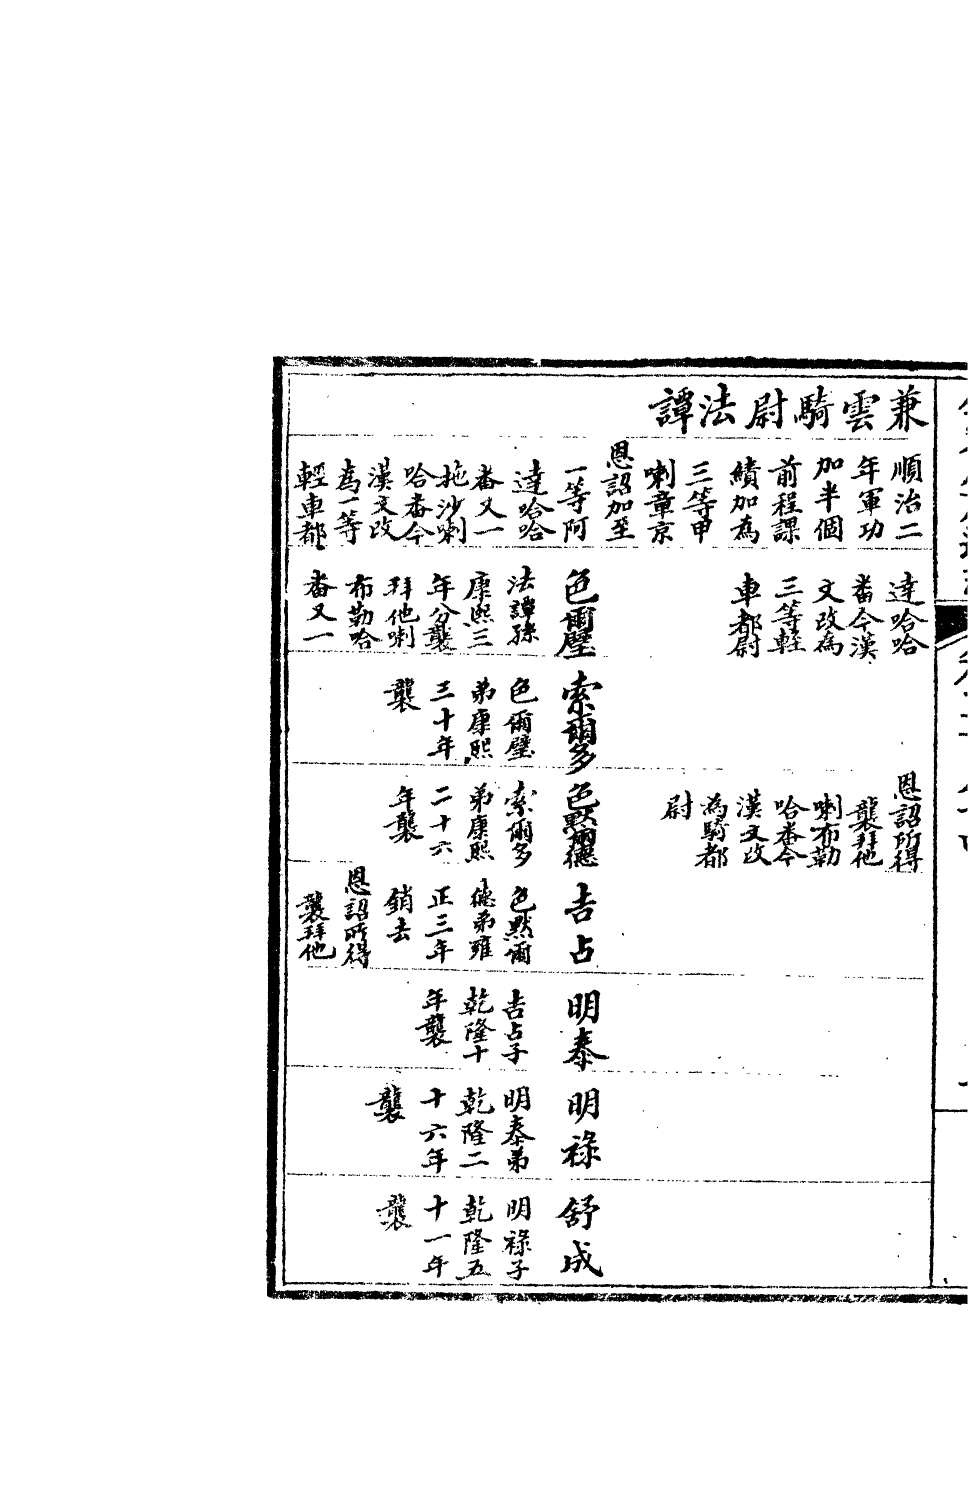 兼雲騎尉法譚
順治二
年軍功
加半個
前程課
績加為
三等甲
喇章京
恩詔加至
一等阿
達哈哈
番又一
拖沙喇
哈番今
漢文改
為一等
輕車都
達哈哈
番今漢
文改為
三等輕
車都尉
色爾璧
法譚孫
康熙三
年分襲
拜他喇
布勒哈
番又一
索爾多
色爾璧
弟康熙
三十年
襲
恩詔所得
襲拜他
喇布勒
哈番今
漢文改
為騎都
尉
色默爾德
索爾多
弟康熙
二十六
年襲
吉占
色默爾
德弟雍
正三年
銷去
恩詔所得
襲拜他
明泰
吉占子
乾隆十
年襲
明祿
明泰弟
乾隆二
十六年
襲
舒成
明祿子
乾隆五
十一年
襲